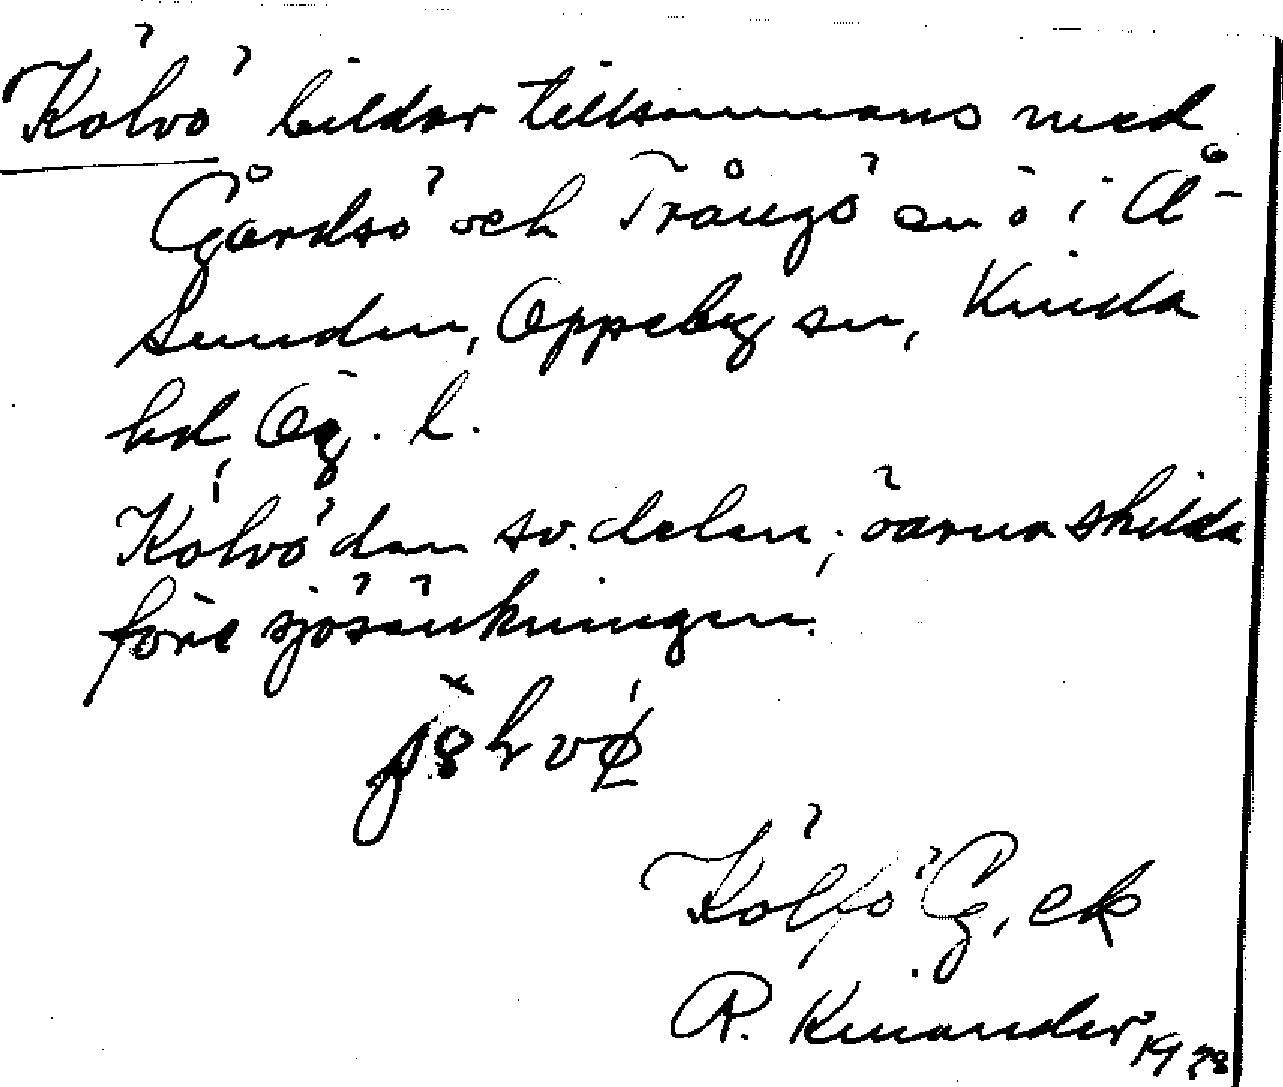 Kölvö bildar tillsammans med
Gårdsö och Trångö en ö i Å-
sunden, Oppeby sn, Kinda
hd, Ög. l.
Kölvö den sv. delen; öarna skilda
före sjösänkningen.
Kölfö G, ek
R. Kinander 1928